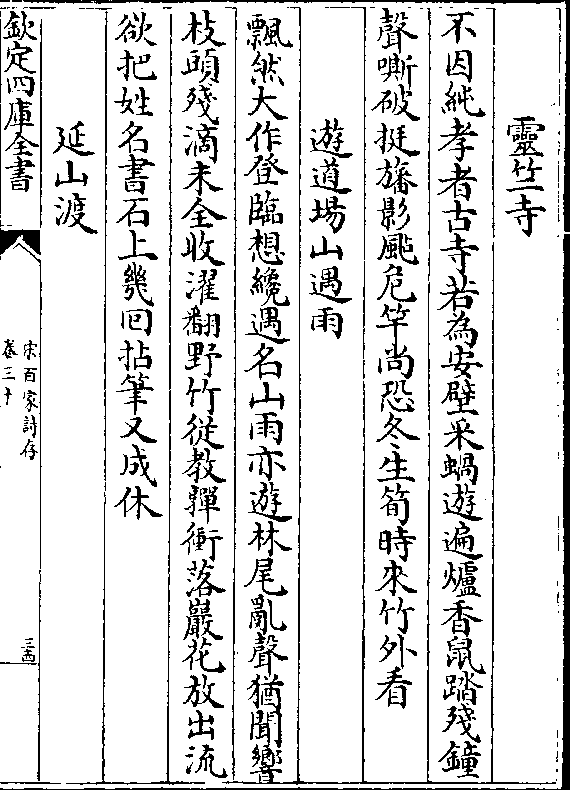 靈竺寺
不因純孝者古寺若為安壁采蝸遊遍爐香鼠踏殘鐘
聲嘶破挺旛影颭危竿尚恐冬生筍時來竹外看
遊道場山遇雨
飄然大作登臨想纔遇名山雨亦遊林尾亂聲猶聞響
枝頭殘滴未全收濯翻野竹從教嚲衝落巖花放出流
欲把姓名書石上幾回拈筆又成休
延山渡
欽定四庫全書
宋百家詩存
卷三十
三西